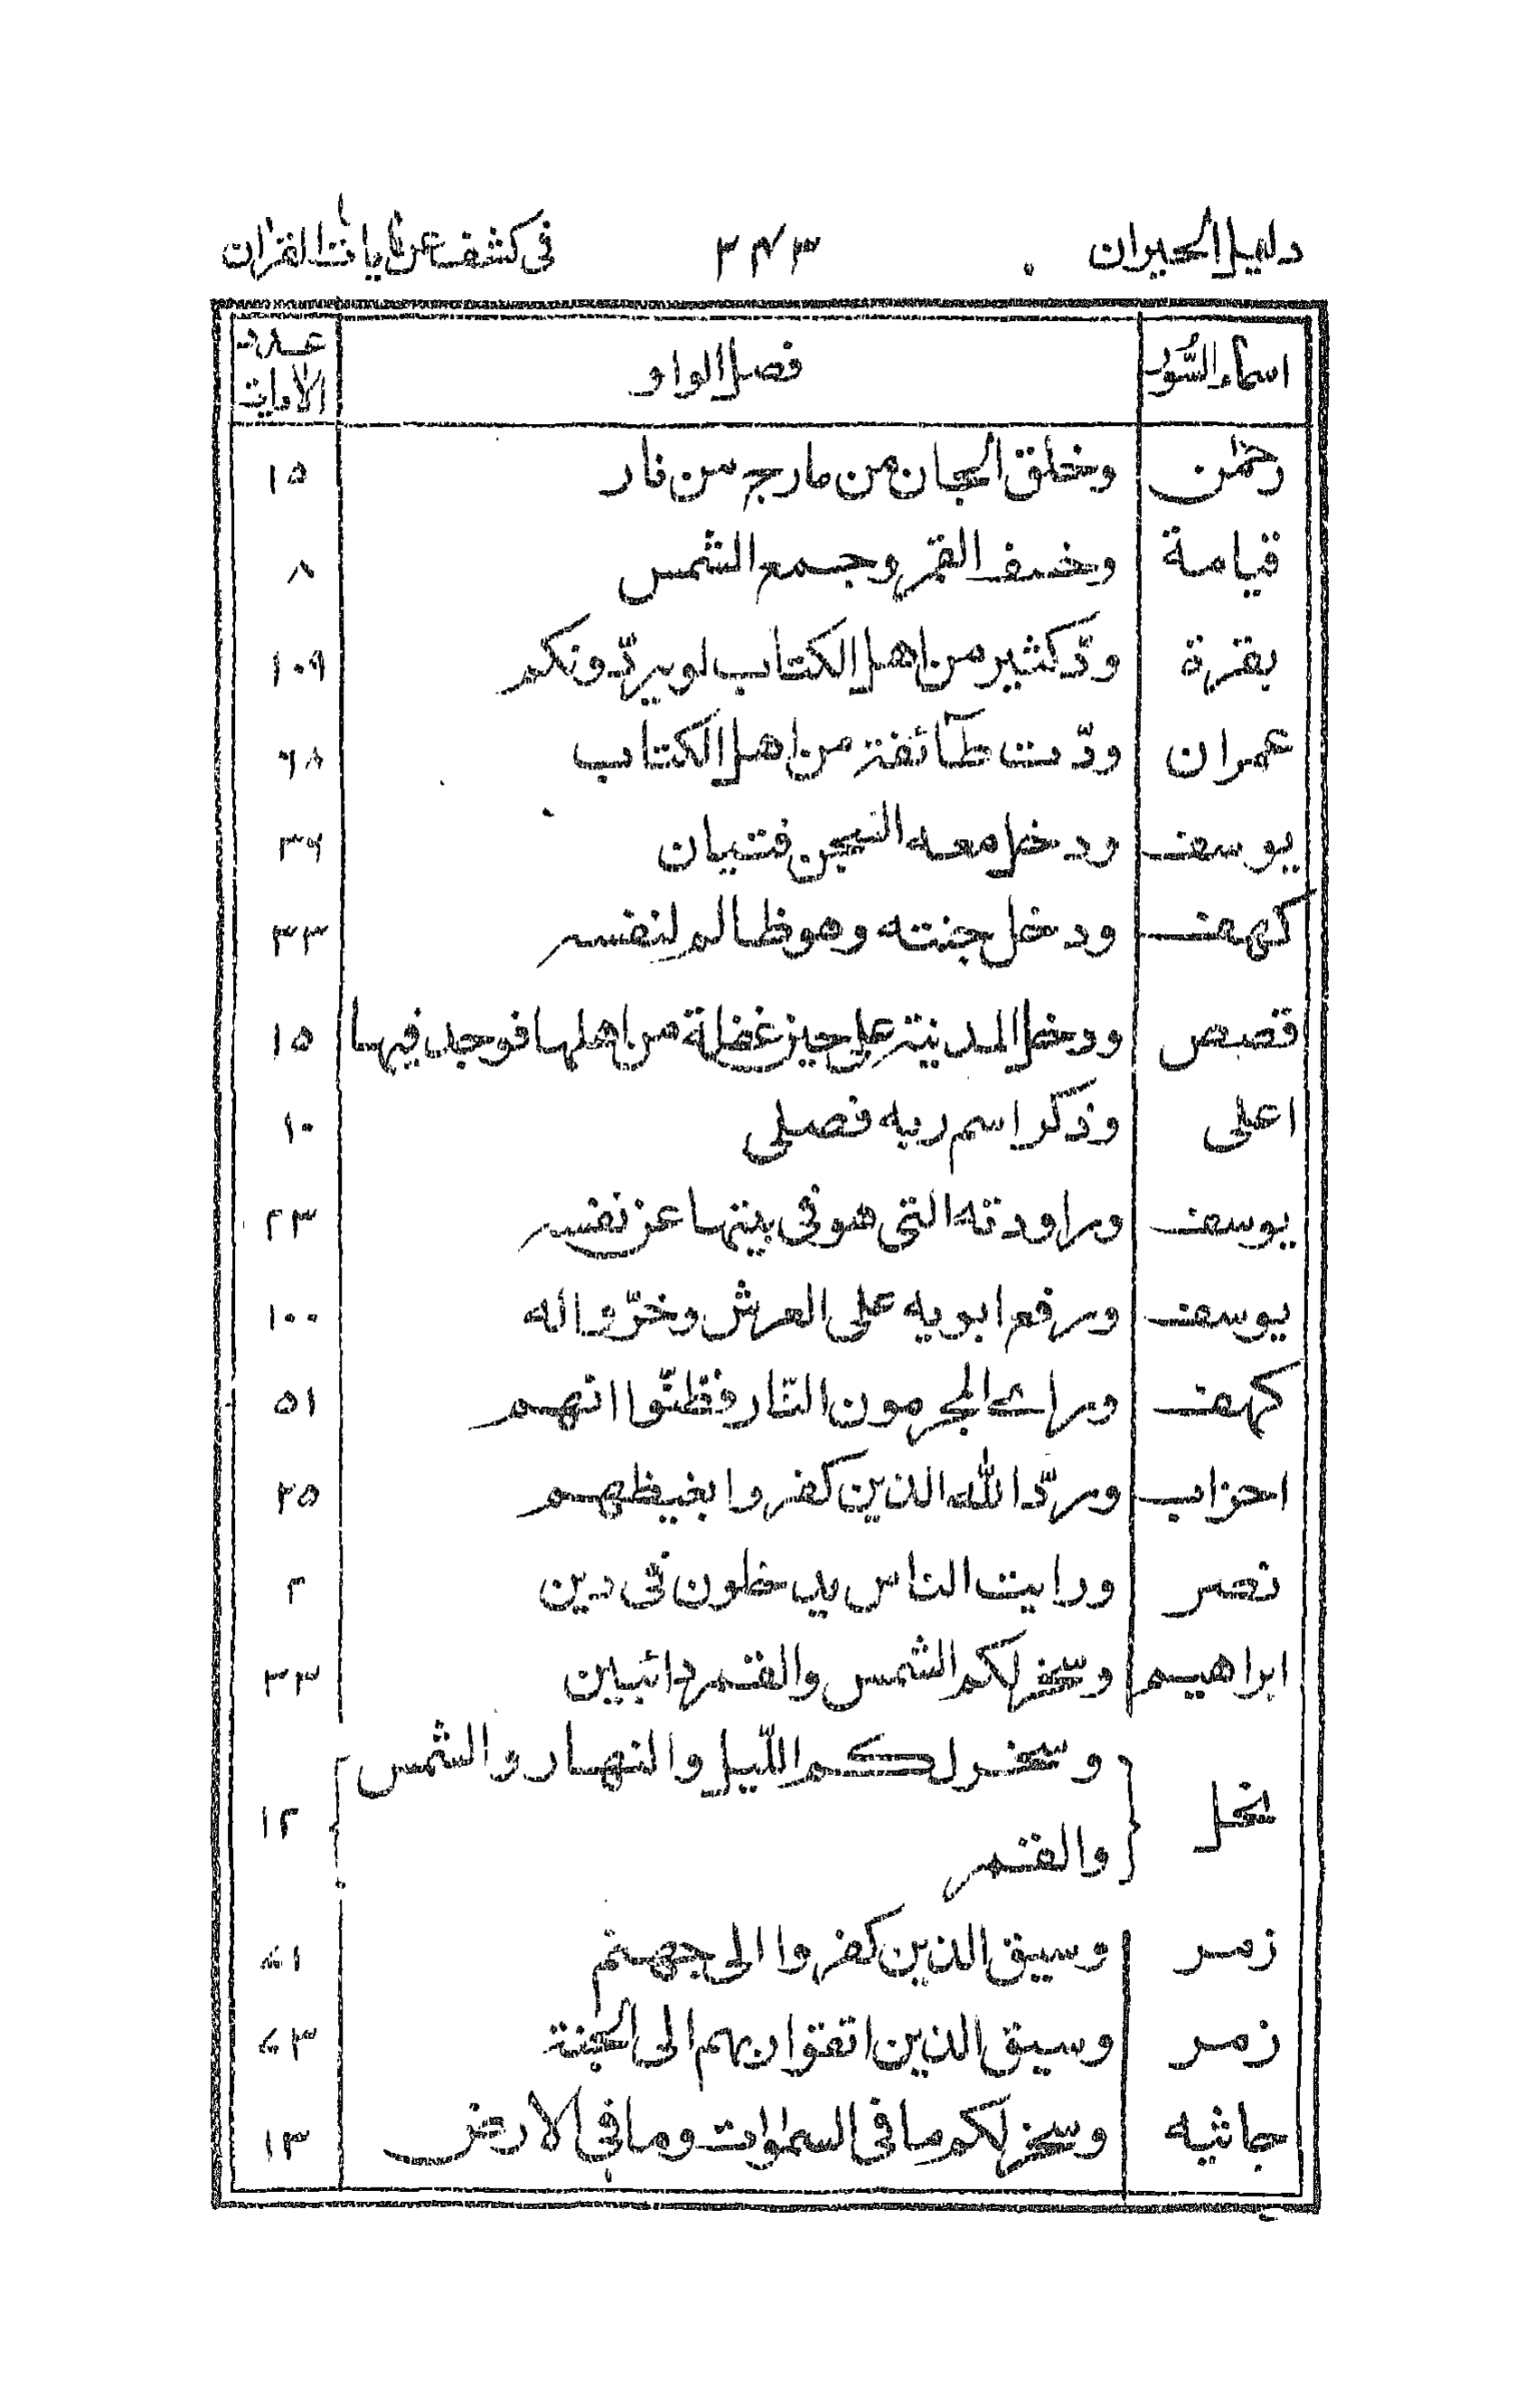 دليل الحيران ٣٤٣ في كشف عن اٰيات القراٰن
اسماء السُّور فصل الواو عدد الاٰيات
رحمٰن وخلق الجان من مارج من نار ١٥
قيامة وخسف القمر وجمع الشمس ٨
بقرة ودّ كثير من اهل الكتاب لو يردّونكم ١٠٩
عمران ودّت طآئفة من اهل الكتاب ٦٨
يوسف ودخل معه السجن فتيان ٣٦
كهف ودخل جنته وهو ظالم لنفسه ٣٣
قصص ودخل المدينة على حين غفلة من اهلها فوجد فيها ١٥
اعلى وذكر اسم ربه فصلى ١٠
يوسف وراودته التى هو فى بيتها عن نفسه ٢٣
يوسف ورفع ابويه على العرش وخرّوا له ١٠٠
كهف ورا المجرمون النّار فظنّوا انهم ٥١
احزاب وردّ الله الذين كفروا بغيظهم ٢٥
نصر ورايت الناس يدخلون فى دين ٢
ابراهيم وسخر لكم الشمس والقمر دائبين ٣٣
نحل وسخر لكم اللّيل والنهار والشمس ١٢
والقمر
زمر وسيق الذين كفروا الى جهنم ٧١
زمر وسيق الذين اتقوا ربهم الى الجنة ٧٣
جاثيه وسخر لكم ما فى السمٰوات وما فى الارض ١٣